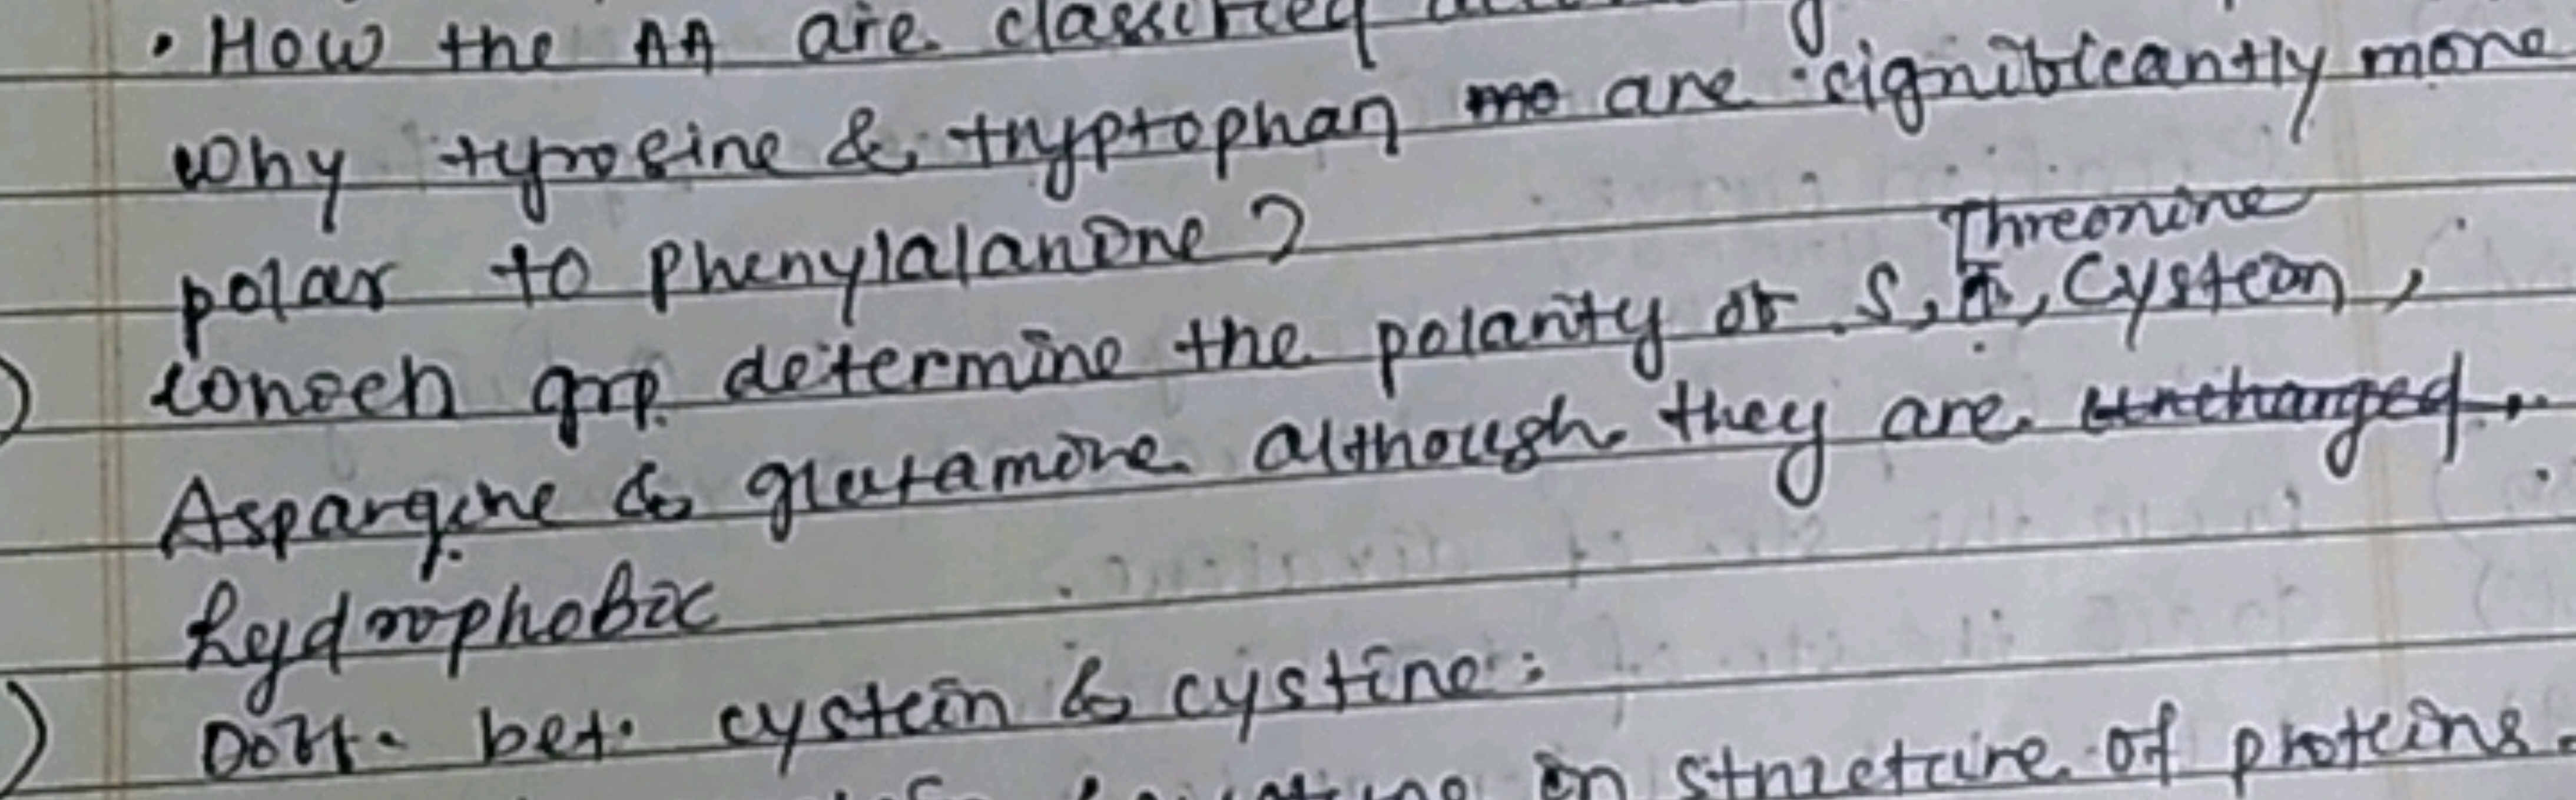 • How the AA are classified
Why tyrosine & tryptophan mo are significantly more
polar to Phenylalanine ?
Threonine
which grp. determine the polarity of S, T, Cystein,
Aspargine & glutamine although they are uncharged.
hydrophobic
Diff. bet. cystein & cystine:
in structure of proteins.